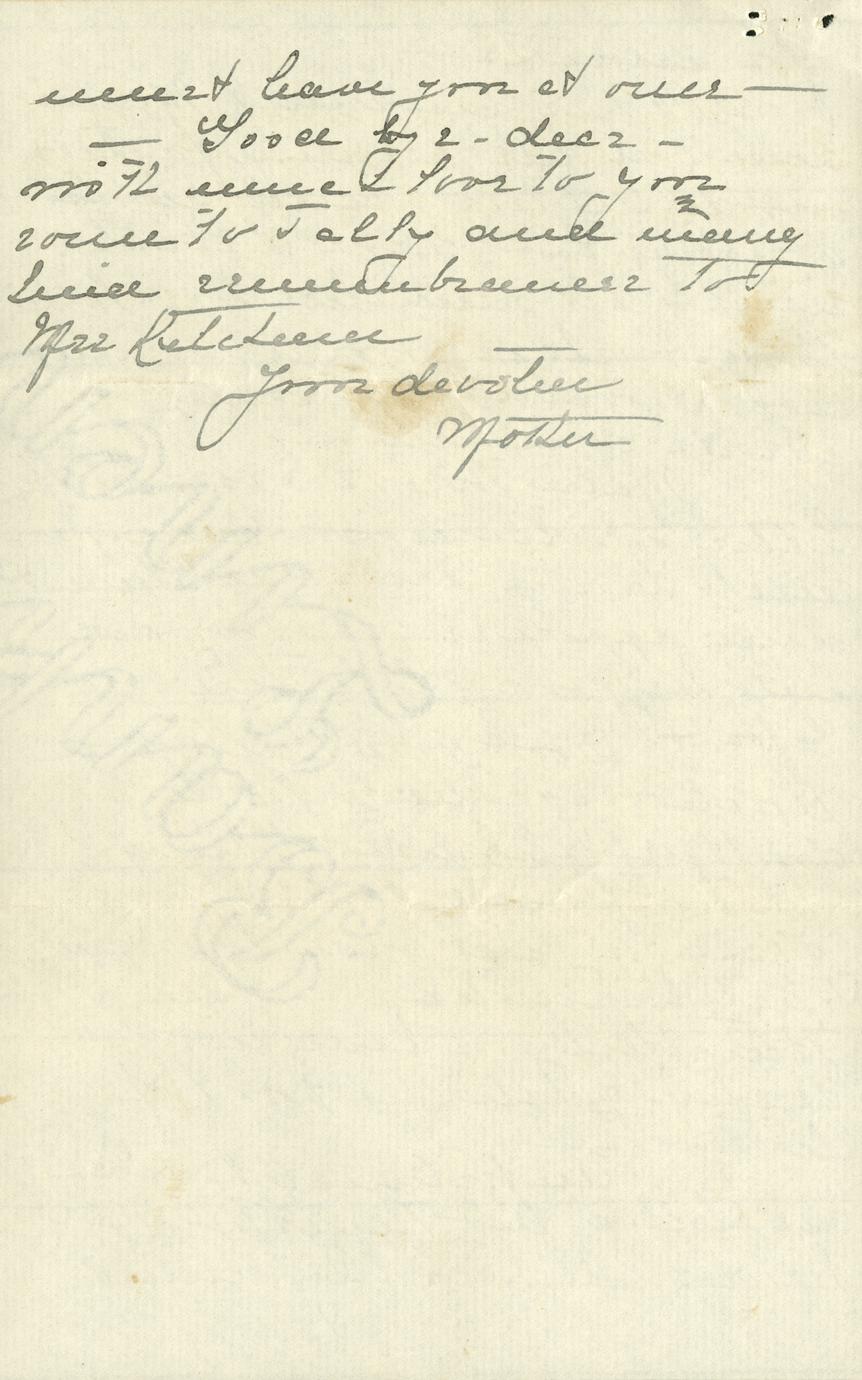 must have you at once —
— Good bye - dear -
with much love to you
some to Tally and many
kind remembrances to
Mrs Ketcham
Your devoted
Mother